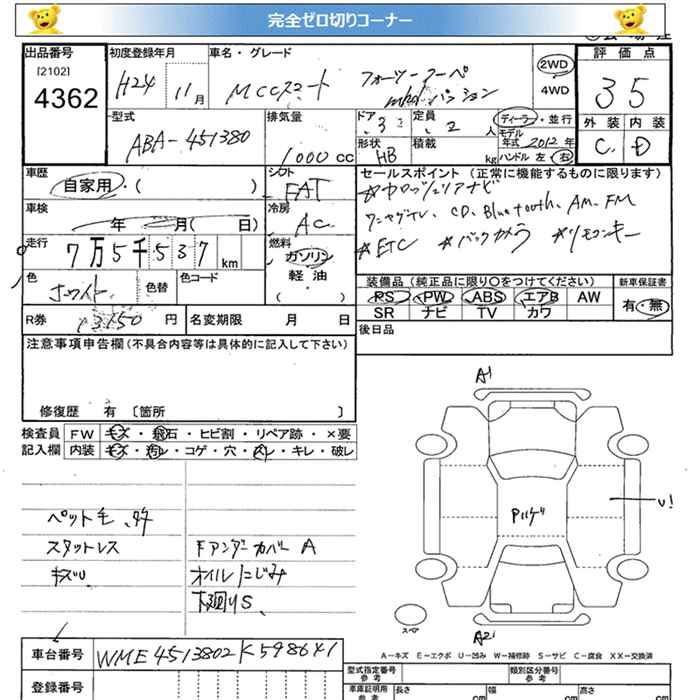 完全ゼロ切りコーナー
出品番号 初度登録年月 車名・グレード 評価点
[2102]
4362 H24 11月 MCCスマート フォーツークーペ 2WD 35
mhdパッション 4WD
型式 排気量 ドア 定員 ディーラー・並行 外装 内装
ABA-451380 1000cc 3 2人 モデル年式 2012年 C D
形状 積載
HB kg ハンドル 左 右
車歴 シフト セールスポイント (正常に機能するものに限ります)
自家用・( ) FAT ☆カロッツェリアナビ
車検 冷房 ワンセグTV、CD、Bluetooth、AM-FM
年 月( 日) AC ☆ETC ☆バックカメラ ☆リモコンキー
走行 燃料
7万5千537km ガソリン
軽油
( ・ )
色 色替 色コード 装備品(純正品に限り○をつけてください) 新車保証書
ホワイト PS PW ABS エアB AW 有・無
SR ナビ TV カワ
R券 円 名変期限 月 日 後日品
注意事項申告欄(不具合内容等は具体的に記入して下さい)
修復歴 有 〔箇所 〕
検査員 FW キズ・飛石・ヒビ割・リペア跡・×要
記入欄 内装 キズ・汚レ・コゲ・穴・スレ・キレ・破レ
A1
U1
ペット毛、
スタットレス Fアンダーカバー A
キズU オイルにじみ
下廻りS
スペア
A2
A-キズ E-エクボ U-凹み W-補修跡 S-サビ C-腐食 XX-交換済
車台番号 WME4513802K598641 型式指定番号 参考 類別区分番号 参考
登録番号 車庫証明用 参考 長さ cm 幅 cm 高さ cm